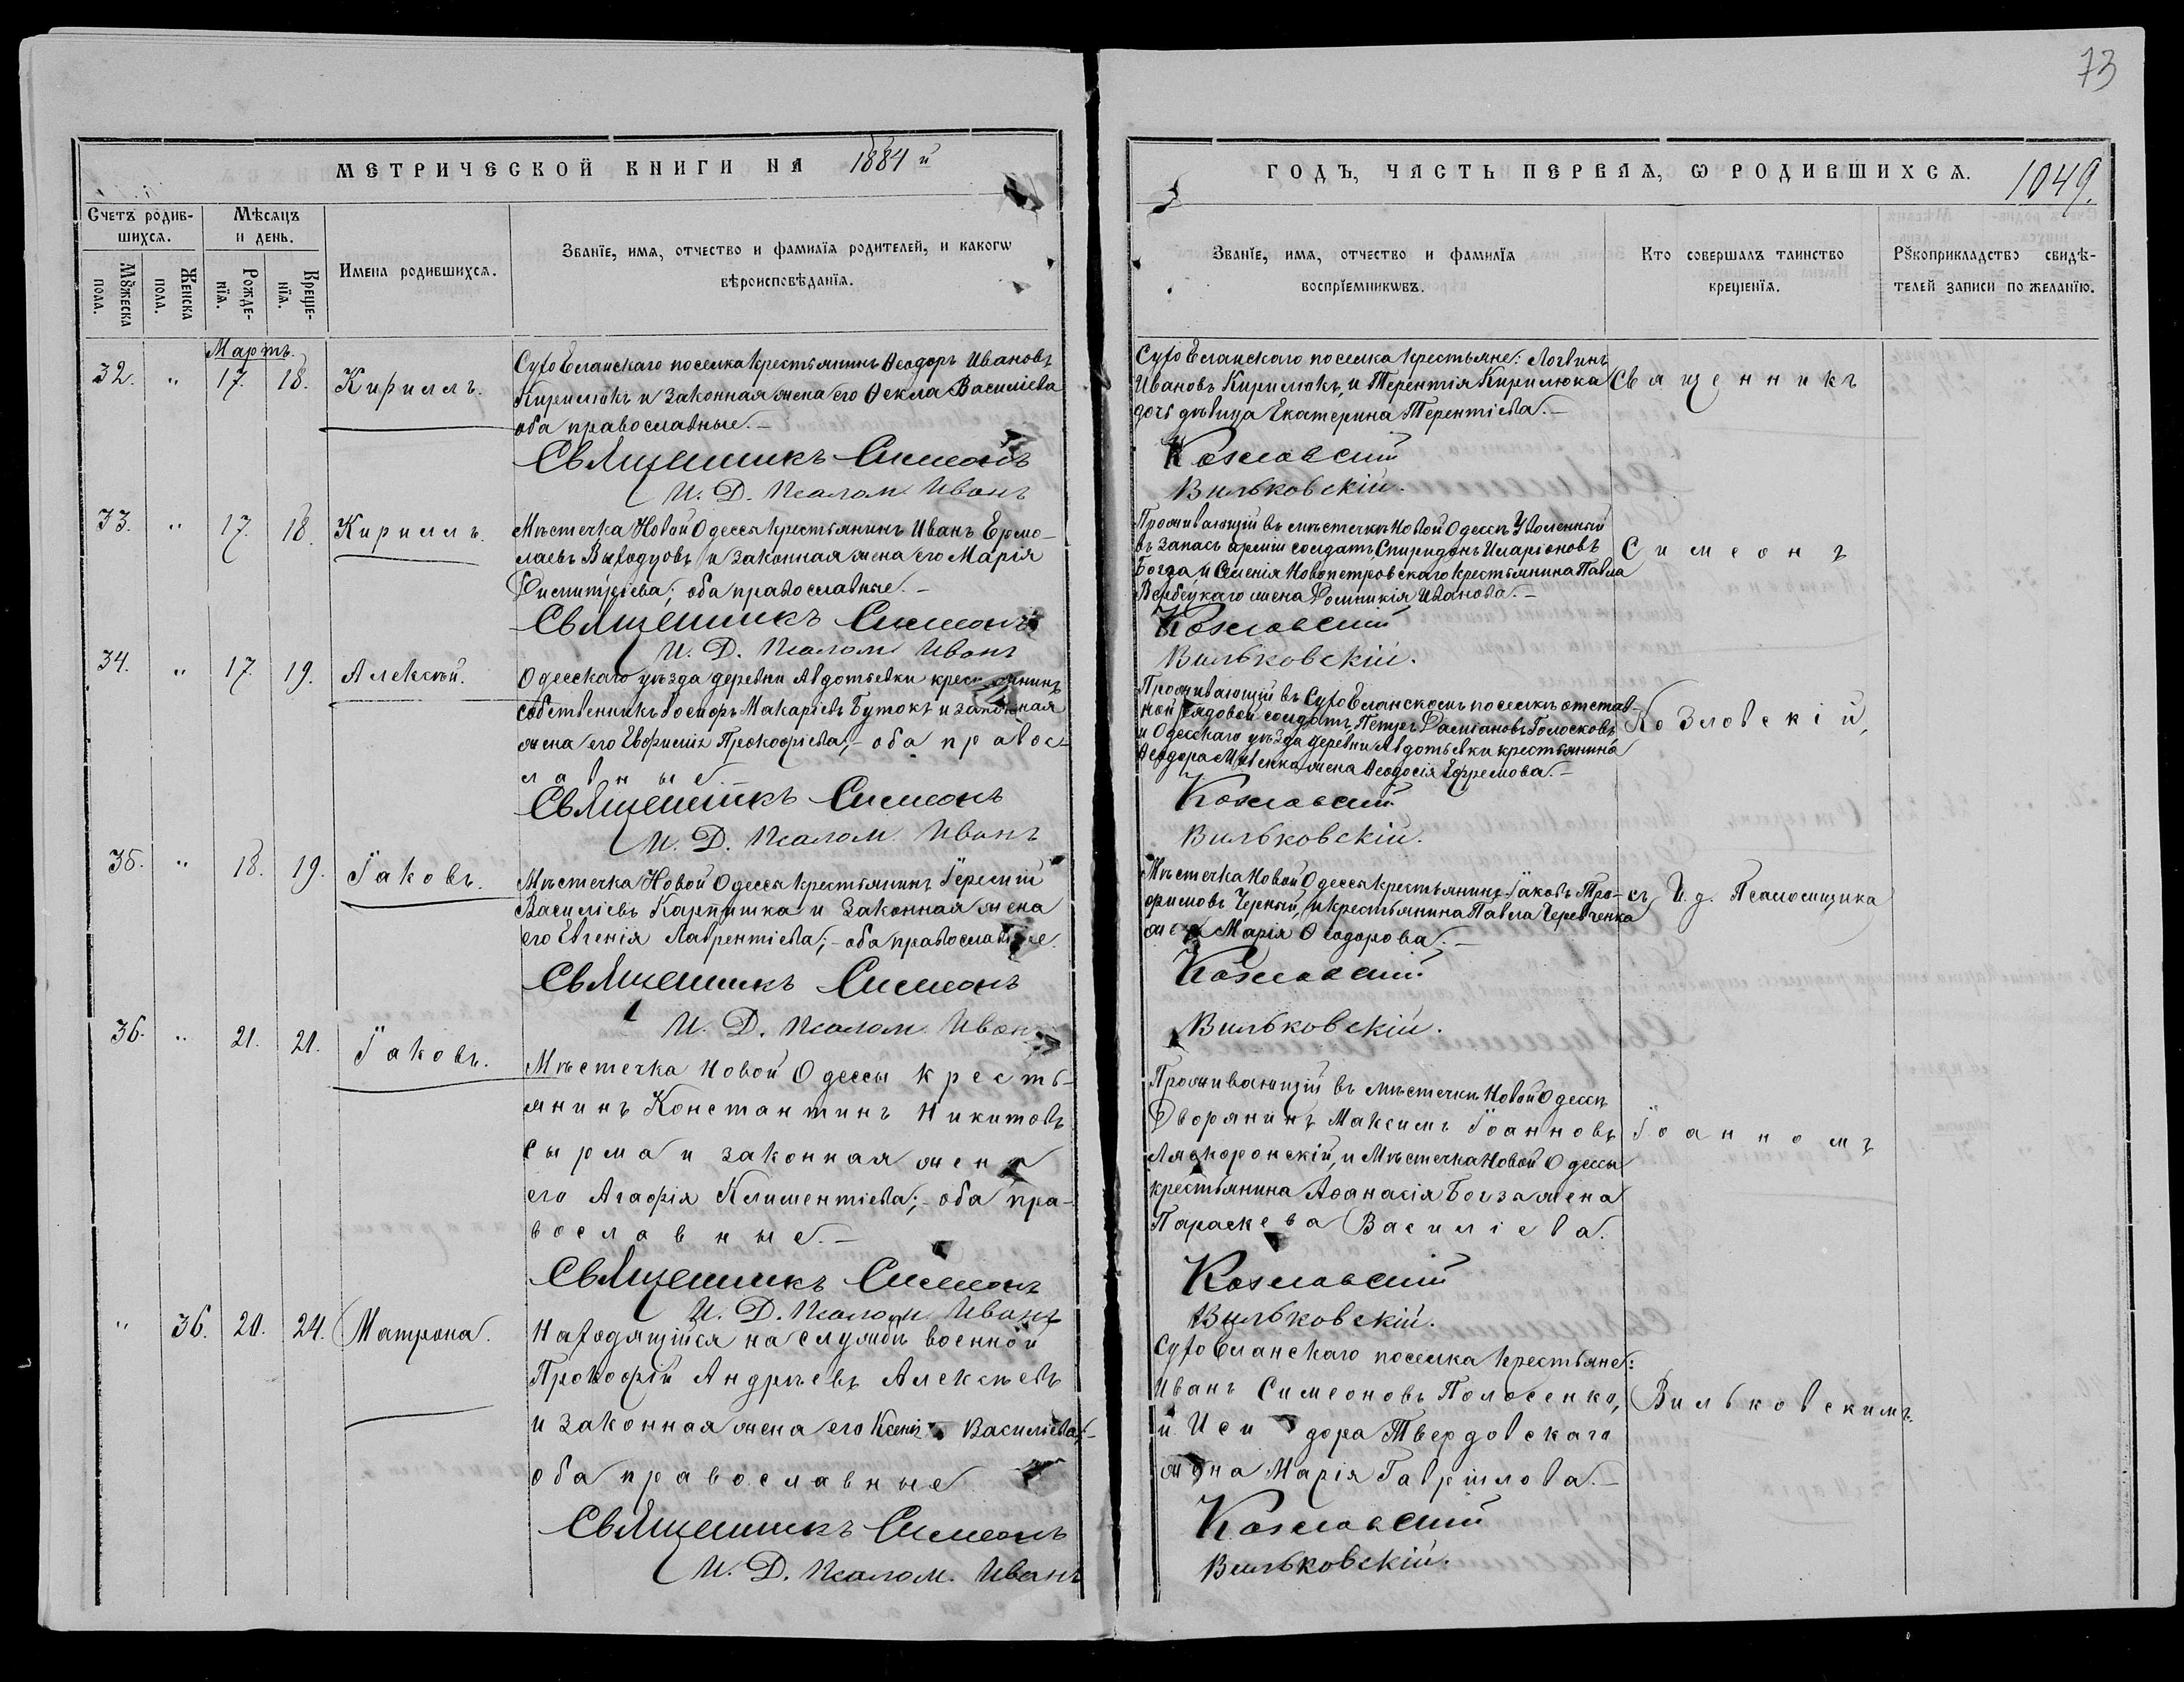 73
МЕТРИЧЕСКОЙ КНИГИ НА 1884 й
ГОДЪ, ЧАСТЬ ПЕРВАЯ, Ѡ РОДИВШИХСѦ.
1049.
Счетъ родив-
шихсѧ.
Мѣсѧцъ
и день.
Мꙋжеска
пола.
Женска
пола.
Рожде-
нїѧ.
Креще-
нїѧ.
Имена родившихсѧ.
Званїе, имѧ, отчество и фамилїѧ родителей, и какогѡ
вѣроисповѣданїѧ.
Званїе, имѧ, отчество и фамилїѧ
воспрїемникѡвъ.
Кто совершалъ таинство
крещенїѧ.
Рꙋкоприкладство свидѣ-
телей записи по желанїю.
Мартъ.
32. " 17. 18. Кириллъ.
Сухо Еланскаго поселка крестьянинъ Ѳеодоръ Ивановъ
Кирилюкъ и законная жена его Ѳекла Василіева
оба православные.—
Священникъ Симеонъ
И. Д. Псалом. Иванъ
Сухо Еланскаго поселка крестьяне: Логвинъ
Ивановъ Кирилюкъ, и Терентія Кирилюка
дочь дѣвица Екатерина Терентіева.—
Козловскій
Вильковскій.
Священникъ
33. " 17. 18. Кириллъ.
Мѣстечка Новой Одессы крестьянинъ Иванъ Ермо-
лаевъ Выходцовъ и законная жена его Марія
Димитріева; оба православные.—
Священникъ Симеонъ
И. Д. Псалом. Иванъ
Проживающій въ мѣстечкѣ Новой Одессѣ Уволенный
въ запасъ арміи солдатъ Спиридонъ Иларіоновъ
Богза, и Селенія Новопетровскаго крестьянина Павла
Вербецкаго жена Домникія Иванова.—
Козловскій
Вильковскій.
Симеонъ
34. " 17. 19. Алексѣй.
Одесскаго уѣзда деревни Авдотьевки крестьянинъ
собственникъ Іосифъ Макаріевъ Бутокъ и законная
жена его Евфимія Прокофіева;— оба правос-
лавные.—
Священникъ Симеонъ
И. Д. Псалом. Иванъ
Проживающій въ Сухо Еланскомъ поселкѣ отстав-
ной рядовой солдатъ, Петръ Даміановъ Голосковъ
и Одесскаго уѣзда деревни Авдотьевки крестьянина
Ѳеодора жена Ѳеодосія Ефремова.—
Козловскій
Вильковскій.
Козловскій,
35. " 18. 19. Іаковъ.
Мѣстечка Новой Одессы крестьянинъ
Василіевъ и законная жена
его Евгенія Лаврентіева;— оба православные.
Священникъ Симеонъ
И. Д. Псалом. Иванъ
Мѣстечка Новой Одессы крестьянинъ Іаковъ Тро-
фимовъ Черный, и крестьянина Павла Черевченка
жена Марія Ѳеодорова.—
Козловскій
Вильковскій.
съ И. д. Псаломщика
36. " 21. 21. Іаковъ.
Мѣстечка Новой Одессы кресть-
янинъ Константинъ Никитовъ
Сырма и законная жена
его Агафія Климентіева;— оба пра-
вославные.—
Священникъ Симеонъ
И. Д. Псалом. Иванъ
Проживающій въ мѣстечкѣ Новой Одессѣ
Дворянинъ Максимъ Іоанновъ
Ляскоронскій, и Мѣстечка Новой Одессы
крестьянина Аѳанасія Богза жена
Параскева Василіева.
Козловскій
Вильковскій.
Іоанномъ
" 36. 20. 24. Матрона.
Находящійся на службѣ военной
Прокофій Андрѣевъ Алексѣевъ
и законная жена его Ксенія Василіева;—
оба православные
Священникъ Симеонъ
И. Д. Псалом. Иванъ
Сухо Еланскаго поселка крестьяне:
Иванъ Симеоновъ Полосенко,
и Исидора Твердовскаго
жена Марія Гавріилова.—
Козловскій
Вильковскій.
Вильковскимъ.